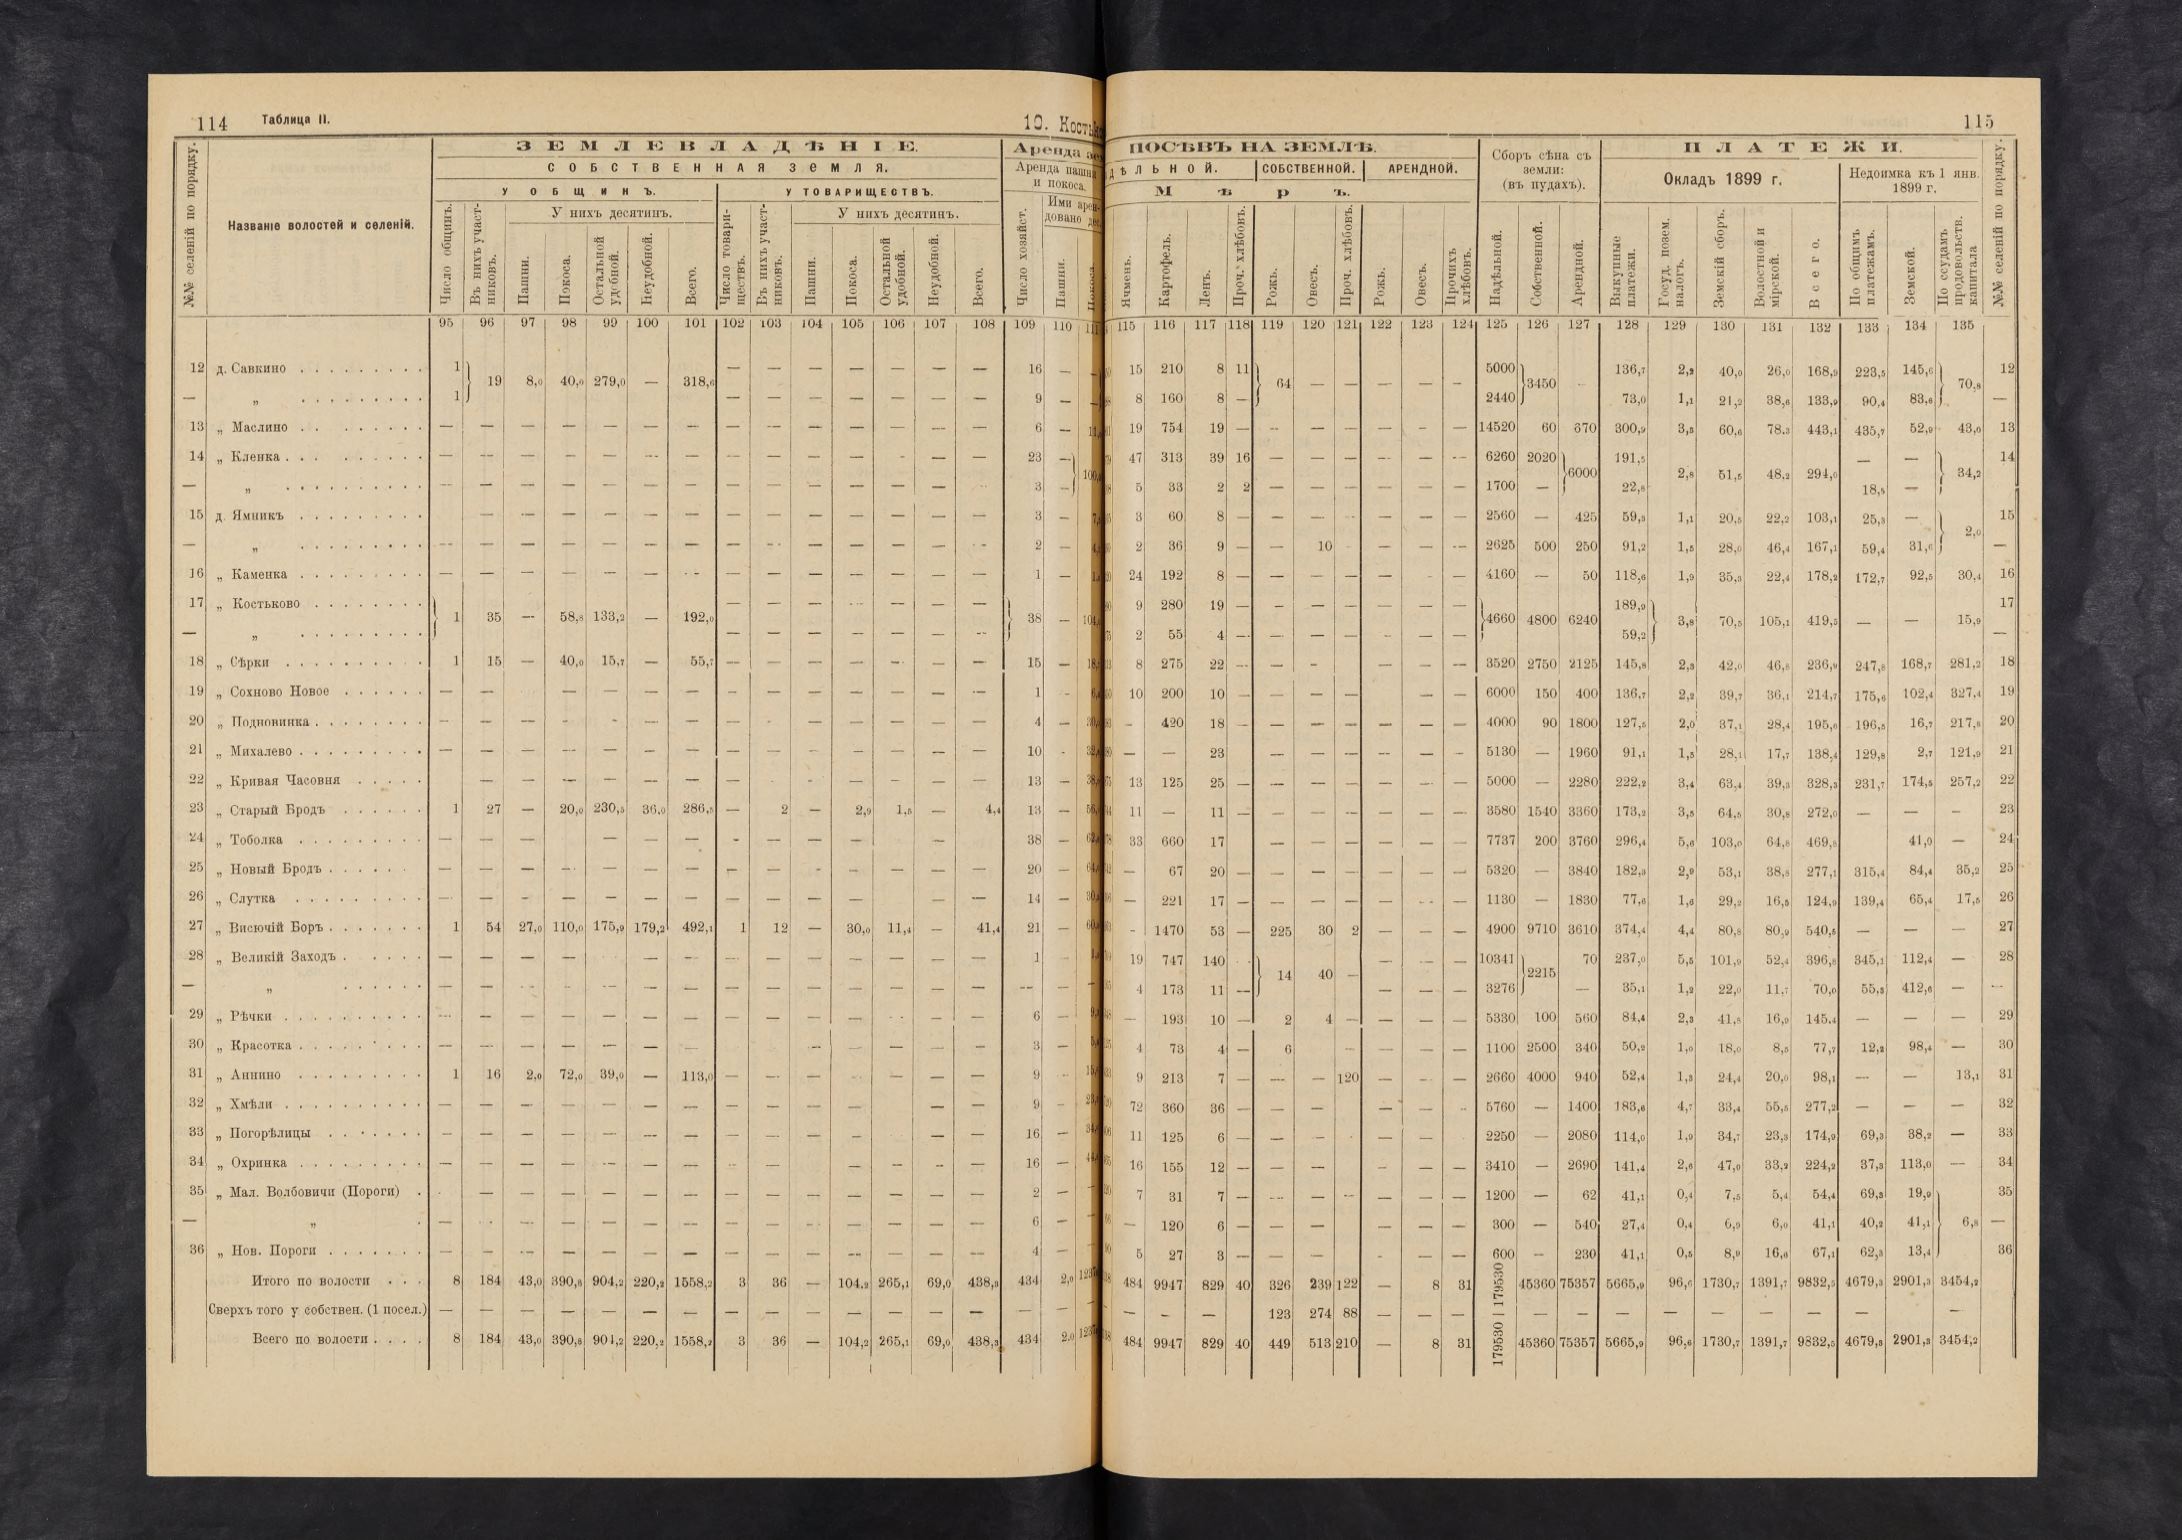 114 Таблица II. 10. Костьк
ЗЕМЛЕВЛАДѢНІЕ. Аренда зем
СОБСТВЕННАЯ ЗЕМЛЯ. Аренда пашни и покоса.
У ОБЩИНЪ. У ТОВАРИЩЕСТВЪ. Ими арен- довано дес.
У нихъ десятинъ. У нихъ десятинъ.
№№ селеній по порядку. Названіе волостей и селеній. Число общинъ. Въ нихъ участ- никовъ. Пашни. Покоса. Остальной удобной. Неудобной. Всего. Число товари- ществъ. Въ нихъ участ- никовъ. Пашни. Покоса. Остальной удобной. Неудобной. Всего. Число хозяйст. Пашни. Покоса.
95 96 97 98 99 100 101 102 103 104 105 106 107 108 109 110 111
12 д. Савкино 1 19 8,0 40,0 279,0 — 318,6 — — — — — — — 16 —
— „ 1 — — — — — — — 9 — —
13 „ Маслино — — — — — — — — — — — — — — 6 —
14 „ Кленка — — — — — — — — — — — — — — 23 —
— „ — — — — — — — — — — — — — — 3 —
15 д. Ямникъ — — — — — — — — — — — — — 3 —
— „ — — — — — — — — — — — — — — 2 —
16 „ Каменка — — — — — — — — — — — — — — 1 —
17 „ Костьково 1 35 — 58,8 133,2 — 192,0 — — — — — — — 38 —
— „ — — — — — — —
18 „ Сѣрки 1 15 — 40,0 15,7 — 55,7 — — — — — — — 15 —
19 „ Сохново Новое — — — — — — — — — — — — — — 1 -
20 „ Подновинка — — — — — — — — — — — — — — 4 —
21 „ Михалево — — — — — — — — — — — — — — 10 -
22 „ Кривая Часовня — — — — — — — — — — — — — 13 —
23 „ Старый Бродъ 1 27 — 20,0 230,5 36,0 286,5 — 2 — 2,9 1,5 — 4,4 13 —
24 „ Тоболка — — — — — — — — — — — — — — 38 —
25 „ Новый Бродъ — — — — — — — — — — — — — — 20 —
26 „ Слутка — — — — — — — — — — — — — — 14 —
27 „ Висючій Боръ 1 54 27,0 110,0 175,9 179,2 492,1 1 12 — 30,0 11,4 — 41,4 21 —
28 „ Великій Заходъ — — — — — — — — — — — — — — 1 —
— „ — — — — — — — — — — — — — — — —
29 „ Рѣчки — — — — — — — — — — — — — — 6 —
30 „ Красотка — — — — — — — — — — — — — 3 —
31 „ Аннино 1 16 2,0 72,0 39,0 — 113,0 — — — — — — — 9 -
32 „ Хмѣли — — — — — — — — — — — — 9 —
33 „ Погорѣлицы — — — — — — — — — — — — — 16 —
34 „ Охринка — — — — — — — — — — — — — — 16 —
35 „ Мал. Волбовичи (Пороги) — — — — — — — — — — — — — 2 —
— „ — — — — — — — — — — — — — — 6 —
36 „ Нов. Пороги — — — — — — — — — — — — — — 4 —
Итого по волости 8 184 43,0 390,8 904,2 220,2 1558,2 3 36 — 104,2 265,1 69,0 438,3 434 2,0
Сверхъ того у собствен. (1 посел.) — — — — — — — — — — — — — — — —
Всего по волости 8 184 43,0 390,8 904,2 220,2 1558,2 3 36 — 104,2 265,1 69,0 438,3 434 2,0
115
ПОСѢВЪ НА ЗЕМЛѢ. Сборъ сѣна съ земли: (въ пудахъ). ПЛАТЕЖИ.
ДѢЛЬНОЙ. СОБСТВЕННОЙ. АРЕНДНОЙ. Окладъ 1899 г. Недоимка къ 1 янв. 1899 г.
Мѣръ.
Ячмень. Картофель. Ленъ. Проч. хлѣбовъ. Рожь. Овесъ. Проч. хлѣбовъ. Рожь. Овесъ. Прочихъ хлѣбовъ. Надѣльной. Собственной. Арендной. Выкупные платежи. Госуд. позем. налогъ. Земскій сборъ. Волостной и мірской. Всего. По общимъ платежамъ. Земской. По ссудамъ продовольств. капитала №№ селеній по порядку.
115 116 117 118 119 120 121 122 123 124 125 126 127 128 129 130 131 132 133 134 135
15 210 8 11 64 — — — — — 5000 3450 — 136,7 2,2 40,0 26,0 168,9 223,5 145,6 70,8 12
8 160 8 — 2440 73,0 1,1 21,2 38,6 133,9 90,4 83,6 —
19 754 19 — — — — — — — 14520 60 670 300,9 3,5 60,6 78,3 443,1 435,7 52,9 43,0 13
47 313 39 16 — — — — — — 6260 2020 6000 191,5 2,8 51,5 48,2 294,0 — — 34,2 14
5 33 2 2 — — — — — — 1700 — 22,8 18,5 —
3 60 8 — — — — — — — 2560 — 425 59,3 1,1 20,5 22,2 103,1 25,3 — 2,0 15
2 36 9 — — 10 — — — 2625 500 250 91,2 1,5 28,0 46,4 167,1 59,4 31,6 —
24 192 8 — — — — — — — 4160 — 50 118,6 1,9 35,3 22,4 178,2 172,7 92,5 30,4 16
9 280 19 — — — — — — — 4660 4800 6240 189,9 3,8 70,5 105,1 419,5 — — 15,9 17
2 55 4 — — — — — — — 59,2 —
8 275 22 — — - — — — — 3520 2750 2125 145,8 2,3 42,0 46,8 236,9 247,8 168,7 281,2 18
10 200 10 — — — — — — 6000 150 400 136,7 2,2 39,7 36,1 214,7 175,6 102,4 327,4 19
- 420 18 — — — — — — — 4000 90 1800 127,5 2,0 37,1 28,4 195,0 196,5 16,7 217,8 20
— — 23 — — — — — — 5130 — 1960 91,1 1,5 28,1 17,7 138,4 129,8 2,7 121,9 21
13 125 25 — — — — — — — 5000 — 2280 222,2 3,4 63,4 39,3 328,3 231,7 174,5 257,2 22
11 — 11 — — — — — — — 3580 1540 3360 173,2 3,5 64,5 30,8 272,0 — — — 23
33 660 17 — — — — — — 7737 200 3760 296,4 5,6 103,0 64,8 469,8 41,0 — 24
— 67 20 — — — — — — — 5320 — 3840 182,3 2,9 53,1 38,8 277,1 315,4 84,4 35,2 25
— 221 17 — — — — — — — 1130 — 1830 77,6 1,6 29,2 16,5 124,9 139,4 65,4 17,5 26
- 1470 53 — 225 30 2 — — — 4900 9710 3610 374,4 4,4 80,8 80,9 540,5 — — — 27
19 747 140 14 40 — — — — 10341 2215 70 237,0 5,5 101,9 52,4 396,8 345,1 112,4 — 28
4 173 11 — — — — 3276 — 35,1 1,2 22,0 11,7 70,0 55,3 412,6 — —
— 193 10 — 2 4 — — — — 5330 100 560 84,4 2,3 41,8 16,9 145,4 — — — 29
4 73 4 — 6 — — — — 1100 2500 340 50,2 1,0 18,0 8,5 77,7 12,2 98,4 — 30
9 213 7 — — — 120 — — — 2660 4000 940 52,4 1,3 24,4 20,0 98,1 — — 13,1 31
72 360 36 — — — — — — 5760 — 1400 183,6 4,7 33,4 55,5 277,2 — — — 32
11 125 6 — — — — — — — 2250 — 2080 114,0 1,9 34,7 23,3 174,9 69,3 38,2 — 33
16 155 12 — — — — - — — 3410 — 2690 141,4 2,6 47,0 33,2 224,2 37,3 113,0 — 34
7 31 7 — — — — — — — 1200 — 62 41,1 0,4 7,5 5,4 54,4 69,3 19,9 6,8 35
— 120 6 — — — — — — — 300 — 540 27,4 0,4 6,9 6,0 41,1 40,2 41,1 —
5 27 3 — — — — - — — 600 — 230 41,1 0,5 8,9 16,6 67,1 62,3 13,4 36
484 9947 829 40 326 239 122 — 8 31 179530 45360 75357 5665,9 96,6 1730,7 1391,7 9832,5 4679,3 2901,3 3454,2
— — — 123 274 88 — — — — — — — — — — — — — —
484 9947 829 40 449 513 210 — 8 31 179530 45360 75357 5665,9 96,6 1730,7 1391,7 9832,5 4679,3 2901,3 3454,2